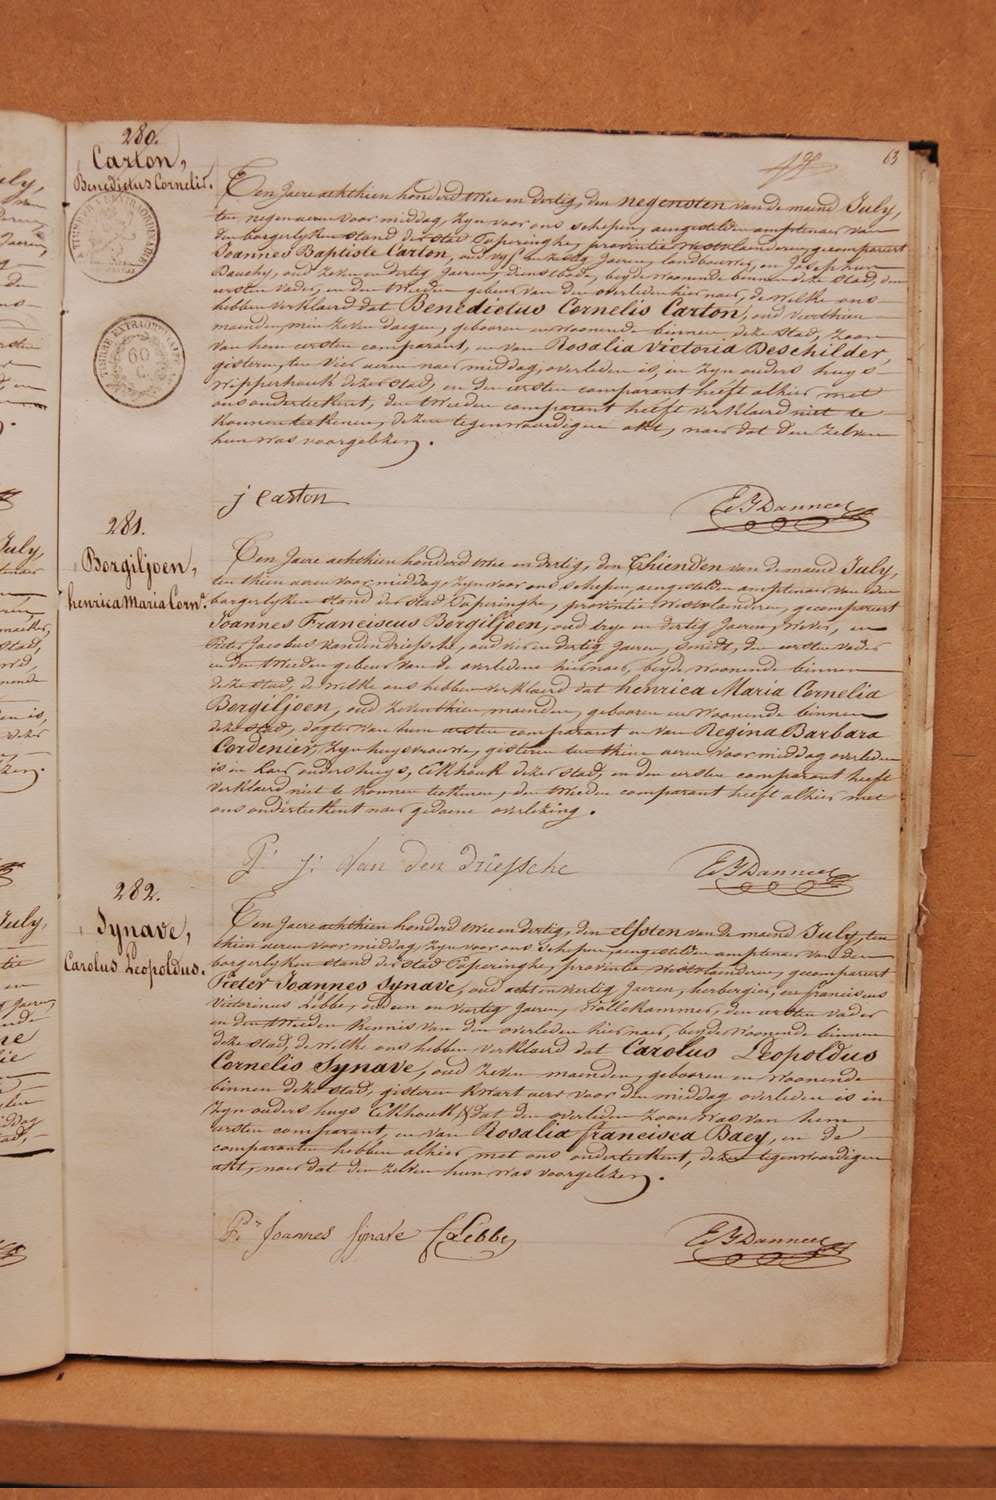 63
280.
Carton,
Benedictus Cornelis.
TIMBRE EXTRAORDINAIRE
60
C.
Ten Jaere achthien honderd twee en dertig, den negensten van de maend July,
ten negen ueren voor middag, zyn voor ons schepen, aengestelden amptenaer van
den borgerlyken stand der stad Poperinghe, provintie Westvlaenderen, gecompareert
Joannes Baptiste Carton, oud vyf en zestig Jaeren, landbouwer, en Josephus
Bauchy, oud zeven en dertig Jaeren, dienstbode, beyde woonende binnen deze stad, den
eersten vader, en den tweeden gebuer van den overleden hier naer, de welke ons
hebben verklaerd dat Benedictus Cornelis Carton, oud veerthien
maenden, min zeven daegen, gebooren en woonende binnen deze stad, zoon
van hem eersten comparant, en van Rosalia Victoria Deschilder,
gisteren, ten vier ueren naer middag, overleden is, in zyn ouders huys
Wipperhouk dezer stad, en den eersten comparant heeft alhier met
ons onderteekent, den tweeden comparant heeft verklaerd niet te
konnen teekenen, dezen tegenwoordigen akt, naer dat den zelven
hun was voorgelezen.
j Carton
281.
Borgiljoen,
henrica Maria Corna.
Ten Jaere achthien honderd twee en dertig, den Thienden van de maend July,
ten thien ueren voor middag, zyn voor ons schepen, aengestelden amptenaer van den
borgerlyken stand der stad Poperinghe, provintie Westvlaenderen, gecompareert
Joannes Franciscus Borgiljoen, oud drye en dertig Jaeren, wever, en
Pieter Jacobus Vandendriessche, oud vier en dertig Jaeren, smidt, den eersten vader
en den tweeden gebuer van de overledene hier naer, beyde woonende binnen
deze stad, de welke ons hebben verklaerd dat henrica Maria Cornelia
Borgiljoen, oud zeventhien maenden, gebooren en woonende binnen
deze stad, dogter van hem eersten comparant en van Regina Barbara
Cordenier, zyn huysvrouwe, gisteren ten thien ueren voor middag overleden
is in haer ouders huys, Eekhouk dezer stad, en den eersten comparant heeft
verklaerd niet te konnen teekenen, den tweeden comparant heeft alhier met
ons onderteekent naer gedaene overlezing.
P: J: Van Den Driessche
282.
Synave,
Carolus Leopoldus.
Ten Jaere achthien honderd twee en dertig, den elfsten van de maend July, ten
thien ueren voor middag, zyn voor ons schepen, aengestelden amptenaer van den
borgerlyken stand der stad Poperinghe, provintie Westvlaenderen, gecompareert
Pieter Joannes Synave, oud acht en veertig Jaeren, herbergier, en franciscus
Victorinus Lebbe, oud een en veertig Jaeren, Wollekammer, den eersten vader
en den tweeden kennis van den overleden hier naer, beyde woonende binnen
deze stad, de welke ons hebben verklaerd dat Carolus Leopoldus
Cornelis Synave, oud zeven maenden, gebooren en woonende
binnen deze stad, gisteren kwart uer voor den middag overleden is in
zyn ouders huys Eekhouk, & dat den overleden zoon was van hem
eersten comparant, en van Rosalia francisca Baey, en de
comparanten hebben alhier met ons onderteekent, dezen tegenwoordigen
akt, naer dat den zelven hun was voorgelezen.
Pr Joannes Synave f Lebbe